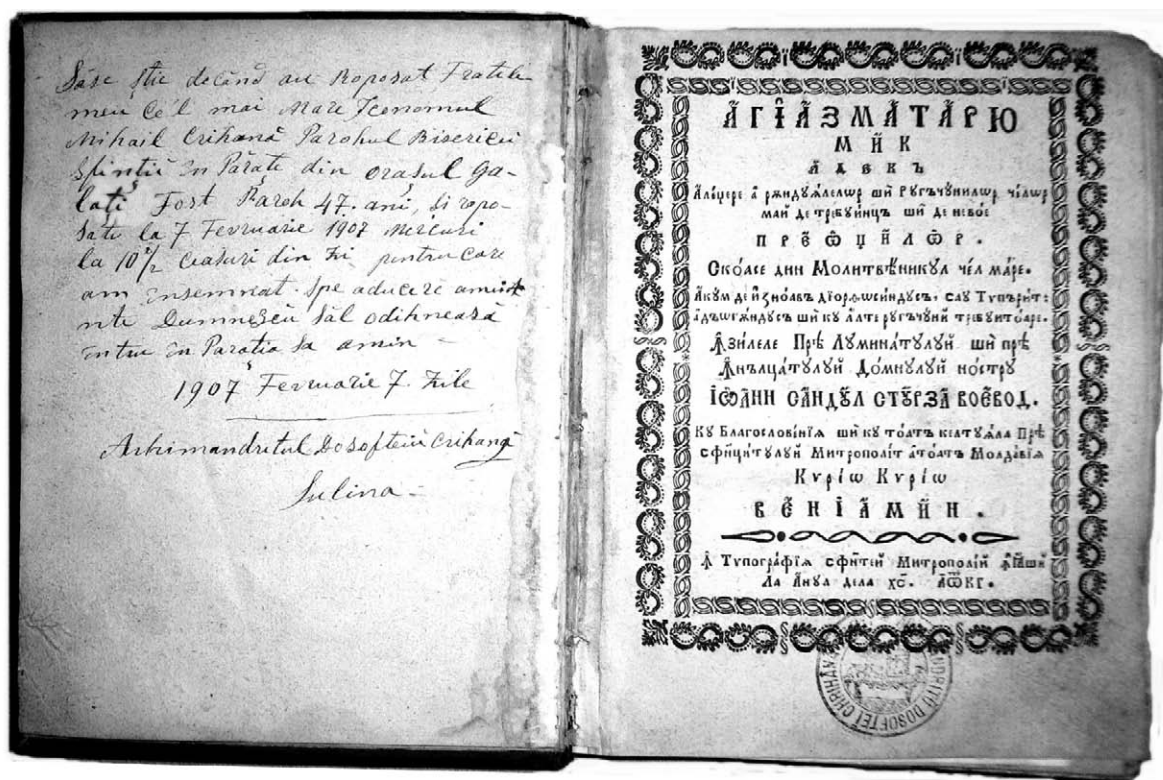 Sase știe decând au Roposat Fratele
meu Ce'l mai Mare Iconomul
Mihail Crihană Parohul Bisericei
Sfintii În Părate din orasul Ga-
lați Fost Paroh 47. ani, si ropo-
sate la 7 Fevruarie 1907 Mercuri
la 10½ Ceasuri din Zi pentru care
am Ensemnat. Spe aducere amint
nte Dumneẕeu Săl odihnească
Entru În Paratia Sa amin -
1907 Fevruarie 7. Zile
Arhimandritul Dosofteiu Crihană
Sulina -
А҆ГЇА҆ЗМАТА́РЮ
МИ́К
А҆ДЕКЪ
А҆ле́џере а҆ рѫндꙋѧ́лелѡр шѝ Рꙋгъчꙋнилѡр че́лѡр
май де требꙋинцъ шѝ де невое
ПРЕѠ҆ЦИЛѠ҆Р.
Ско́асе дин Молитве́никꙋл че́л ма́ре.
А҆кꙋм де и҆зноавъ дїорѳѡсиндꙋсъ, саꙋ Тѵпъри́т:
а҆дъѡгѫндꙋсъ шѝ кꙋ а҆лте рꙋгъчꙋнѝ требꙋитоаре.
Ꙟ҆зилеле Пре́ Лꙋмина́тꙋлꙋй шѝ пре́
Ꙟ҆нълца́тꙋлꙋй До́мнꙋлꙋй но́стрꙋ
І҆ѠАНН СА́НДꙊЛ СТꙊ́РЗА ВОЕ҆ВОД.
Кꙋ Благослове́нїѧ шѝ кꙋ тоатъ келтꙋѧ́ла Пре́
сфинци́тꙋлꙋй Митрополи́т а҆тоатъ Молда́вїѧ
Кѵрі́ѡ Кѵрі́ѡ
ВЕНІА҆МИ́Н.
Ꙟ҆ Тѵпогра́фїѧ сфинтей Митрополі́й ꙟ҆ І҆а҆шѝ
Ла А҆нꙋл дела хс҃. аѿкг.
CHRIHAN
ANDRITU DOSOFTEI